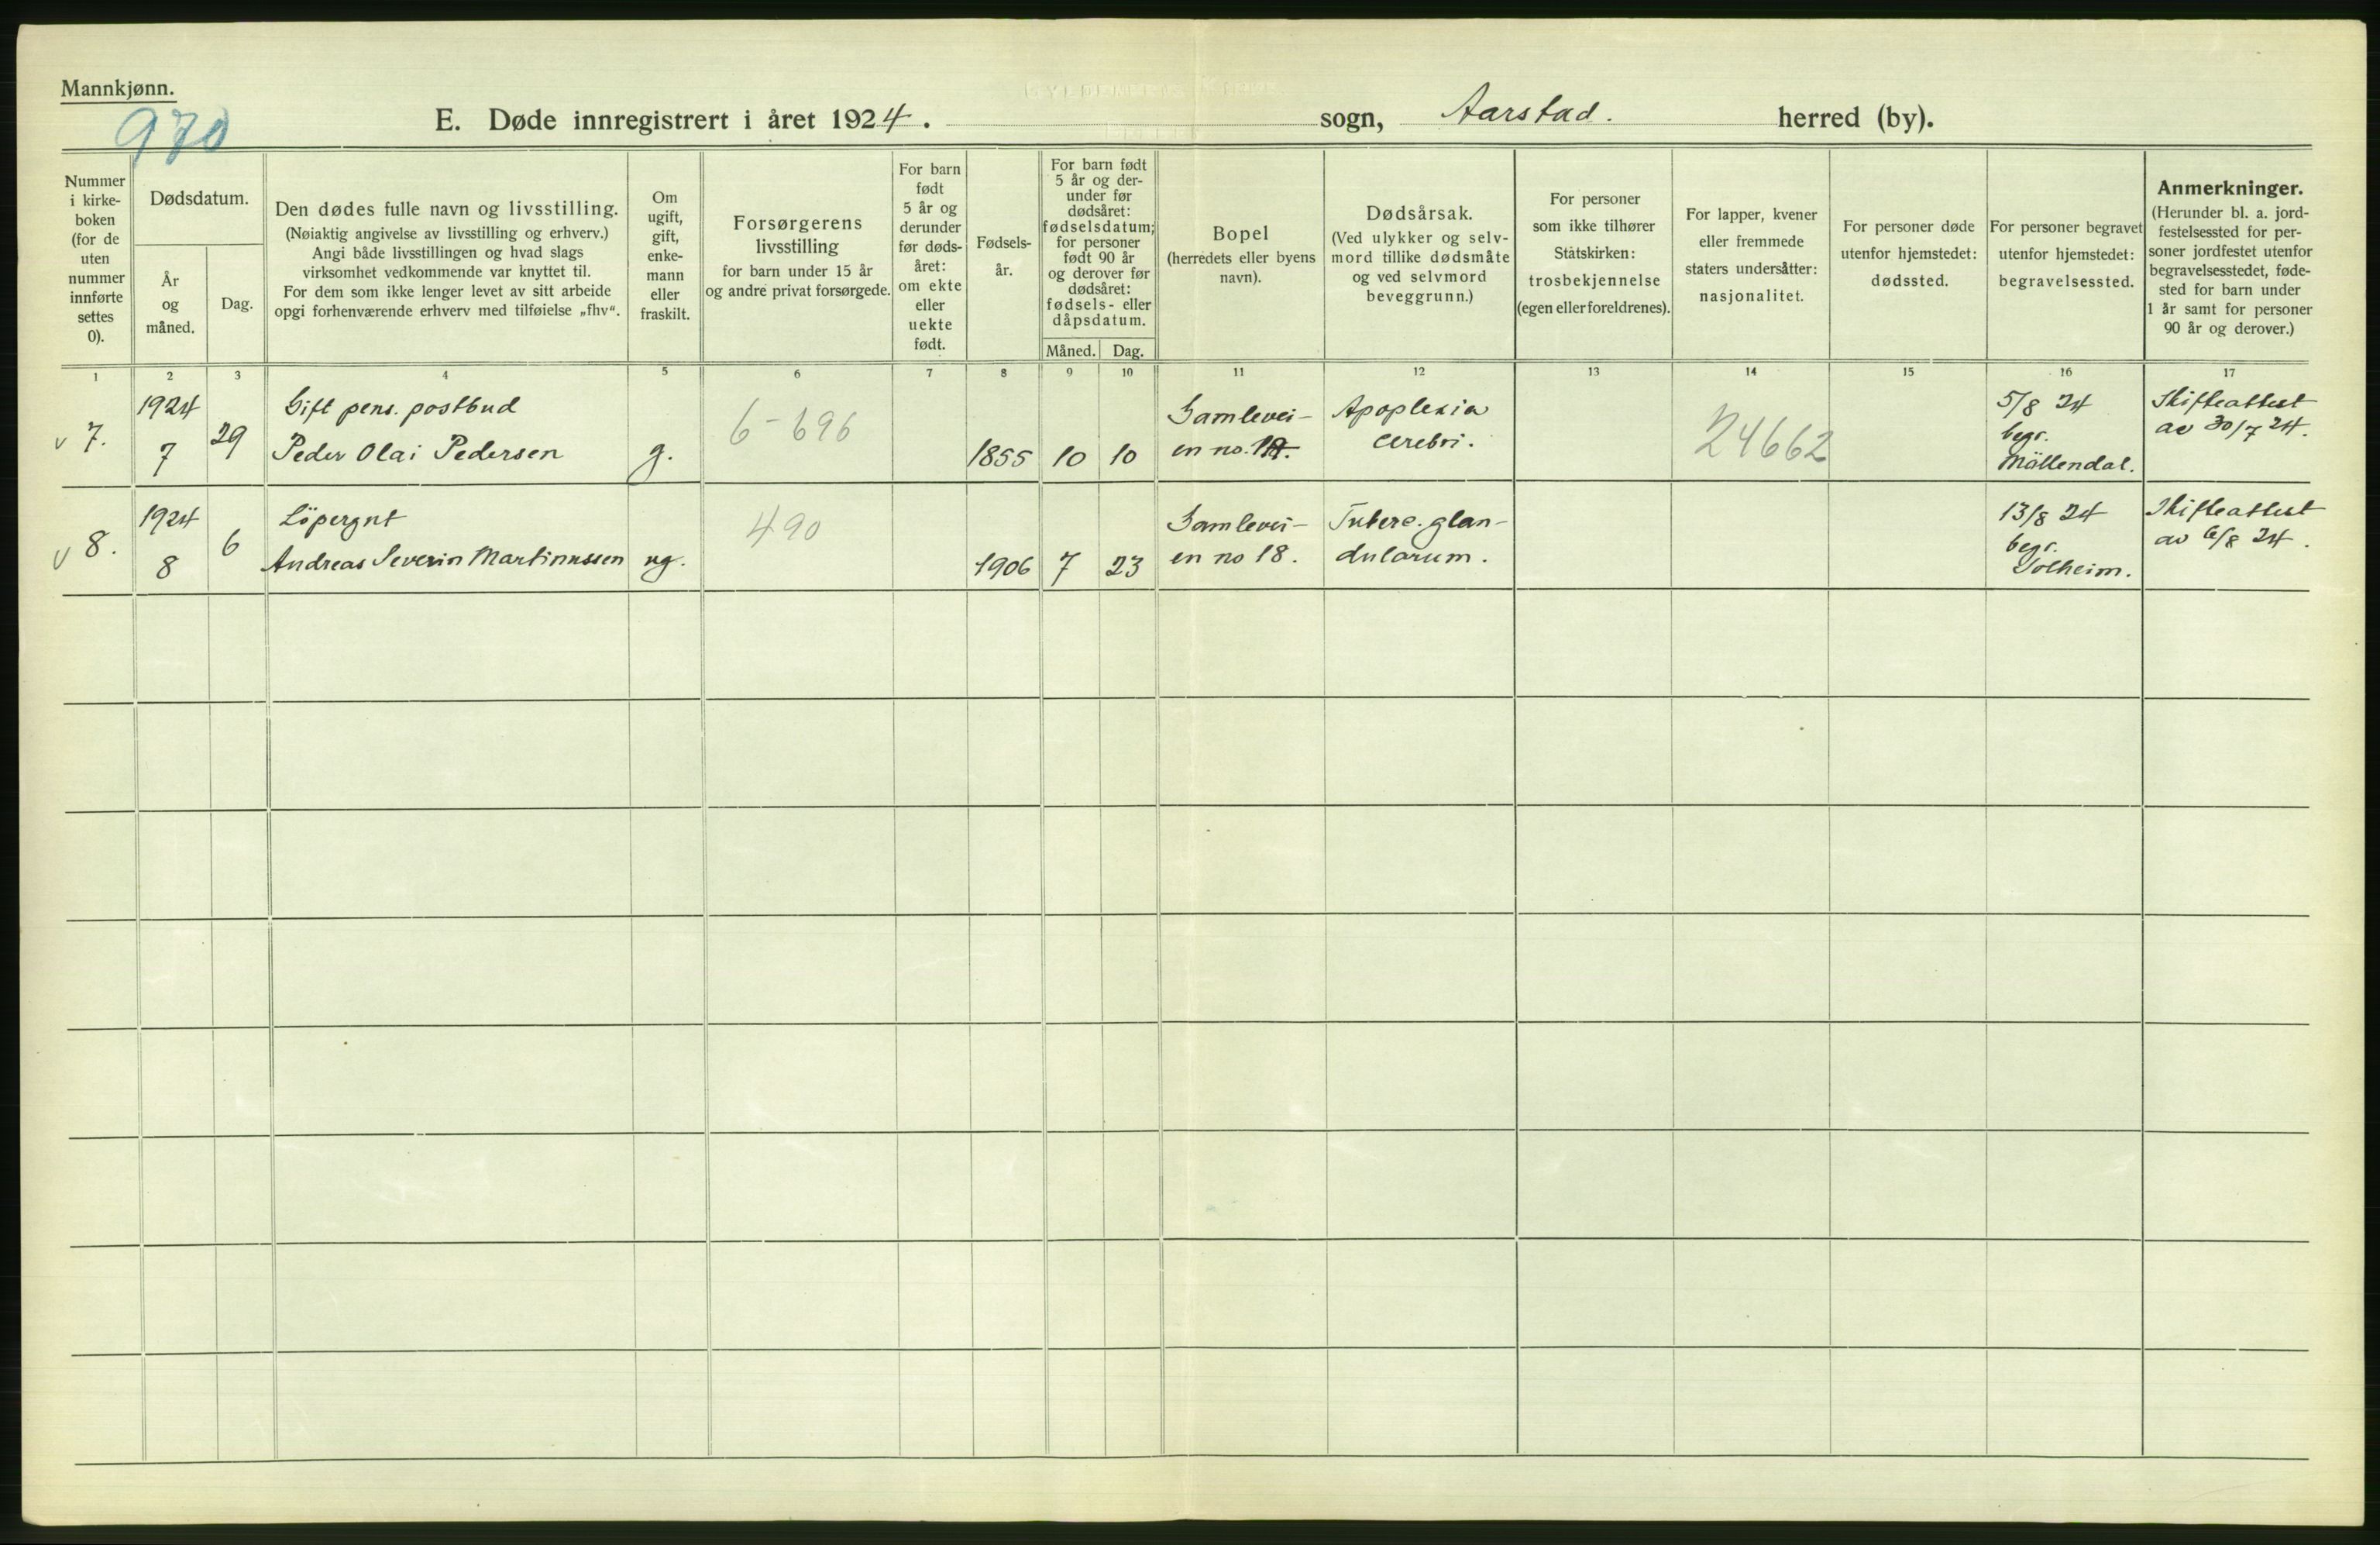 Mannkjønn.
970
E. Døde innregistrert i året 1924. sogn, Aarstad. herred (by).
Nummer
i kirke-
boken
(for de
uten
nummer
innførte
settes
0).
Dødsdatum.
År
og
måned.
Dag.
Den dødes fulle navn og livsstilling.
(Nøiaktig angivelse av livsstilling og erhverv.)
Angi både livsstillingen og hvad slags
virksomhet vedkommende var knyttet til.
For dem som ikke lenger levet av sitt arbeide
opgi forhenværende erhverv med tilføielse „fhv“.
Om
ugift,
gift,
enke-
mann
eller
fraskilt.
Forsørgerens
livsstilling
for barn under 15 år
og andre privat forsørgede.
For barn
født
5 år og
derunder
før døds-
året:
om ekte
eller
uekte
født.
Fødsels-
år.
For barn født
5 år og der-
under før
dødsåret:
fødselsdatum;
for personer
født 90 år
og derover før
dødsåret:
fødsels- eller
dåpsdatum.
Måned. Dag.
Bopel
(herredets eller byens
navn).
Dødsårsak.
(Ved ulykker og selv-
mord tillike dødsmåte
og ved selvmord
beveggrunn.)
For personer
som ikke tilhører
Statskirken:
trosbekjennelse
(egen eller foreldrenes).
For lapper, kvener
eller fremmede
staters undersåtter:
nasjonalitet.
For personer døde
utenfor hjemstedet:
dødssted.
For personer begravet
utenfor hjemstedet:
begravelsessted.
Anmerkninger.
(Herunder bl. a. jord-
festelsessted for per-
soner jordfestet utenfor
begravelsesstedet, føde-
sted for barn under
1 år samt for personer
90 år og derover.)
1 2 3 4 5 6 7 8 9 10 11 12 13 14 15 16 17
v 7.
1924
7
29
Gift pens. postbud
Peder Olai Pedersen
g.
6-696
1855
10
10
Gamlevei-
en no.
Apoplexia
cerebri.
24662
5/8 24
begr.
Möllendal.
Skifteattest
av 30/7 24.
v 8.
1924
8
6
Löpergut
Andreas Severin Martinussen
ug.
490
1906
7
23
Gamlevei-
en no 18.
Tuberc. glan-
dularum.
13/8 24
begr.
Solheim.
Skifteattest
av 6/8 24.